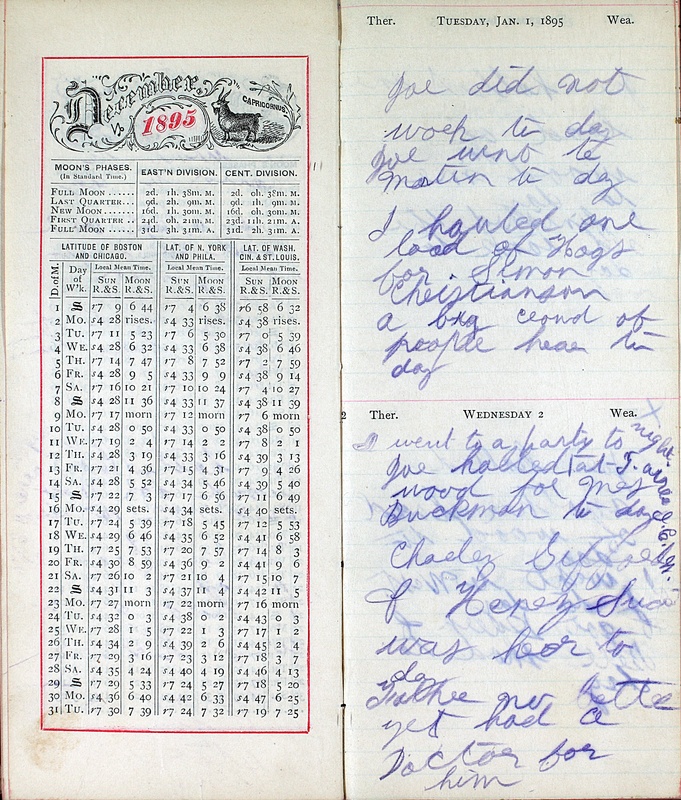 December.
1895
CAPRICORNUS.
MOON'S PHASES. EAST'N DIVISION. CENT. DIVISION.
(In Standard Time.)
FULL MOON...... 2d. 1h. 38m. M. 2d. 0h. 38m. M.
LAST QUARTER... 9d. 2h. 9m. M. 9d. 1h. 9m. M.
NEW MOON....... 16d. 1h. 30m. M. 16d. 0h. 30m. M.
FIRST QUARTER .. 24d. 0h. 21m. M. 23d. 11h. 21m. A.
FULL MOON...... 31d. 3h. 31m. A. 31d. 2h. 31m. A.
LATITUDE OF BOSTON AND CHICAGO. LAT. OF N. YORK AND PHILA. LAT. OF WASH. CIN. & ST. LOUIS.
D. of M. Day of W'k. Local Mean Time. Local Mean Time. Local Mean Time.
SUN R.&S. MOON R.&S. SUN R.&S. MOON R.&S. SUN R.&S. MOON R.&S.
1 S r7 9 6 44 r7 4 6 38 r6 58 6 32
2 MO. s4 28 rises. s4 33 rises. s4 38 rises.
3 TU. r7 11 5 23 r7 6 5 30 r7 0 5 39
4 WE. s4 28 6 32 s4 33 6 38 s4 38 6 46
5 TH. r7 14 7 47 r7 8 7 52 r7 2 7 59
6 FR. s4 28 9 5 s4 33 9 9 s4 38 9 14
7 SA. r7 16 10 21 r7 10 10 24 r7 4 10 27
8 S s4 28 11 36 s4 33 11 37 s4 38 11 39
9 MO. r7 17 morn r7 12 morn r7 6 morn
10 TU. s4 28 0 50 s4 33 0 50 s4 38 0 50
11 WE. r7 19 2 4 r7 14 2 2 r7 8 2 1
12 TH. s4 28 3 19 s4 33 3 16 s4 39 3 13
13 FR. r7 21 4 36 r7 15 4 31 r7 9 4 26
14 SA. s4 28 5 52 s4 34 5 46 s4 39 5 40
15 S r7 22 7 3 r7 17 6 56 r7 11 6 49
16 MO. s4 29 sets. s4 34 sets. s4 40 sets.
17 TU. r7 24 5 39 r7 18 5 45 r7 12 5 53
18 WE. s4 29 6 46 s4 35 6 52 s4 41 6 58
19 TH. r7 25 7 53 r7 20 7 57 r7 14 8 3
20 FR. s4 30 8 59 s4 36 9 2 s4 41 9 6
21 SA. r7 26 10 2 r7 21 10 4 r7 15 10 7
22 S s4 31 11 3 s4 37 11 4 s4 42 11 5
23 MO. r7 27 morn r7 22 morn r7 16 morn
24 TU. s4 32 0 3 s4 38 0 2 s4 43 0 3
25 WE. r7 28 1 5 r7 22 1 3 r7 17 1 2
26 TH. s4 34 2 9 s4 39 2 6 s4 45 2 4
27 FR. r7 29 3 16 r7 23 3 12 r7 18 3 7
28 SA. s4 35 4 24 s4 40 4 19 s4 46 4 13
29 S r7 29 5 33 r7 24 5 27 r7 18 5 20
30 MO. s4 36 6 40 s4 42 6 33 s4 47 6 25
31 TU. r7 30 7 39 r7 24 7 32 r7 19 7 25
Ther. TUESDAY, JAN. 1, 1895 Wea.
Joe did not
work to day
Joe wint to
to day
I hauled one
load of Hogs
for Simon
Christianson
a big croud of
people hear to
day
2 Ther. WEDNESDAY 2 Wea.
I went to a party to night.
Joe halled at
wood for
Buckman to day
Charley
& Henry
was hear to
day
no bette
yet had a
Doctor for
him